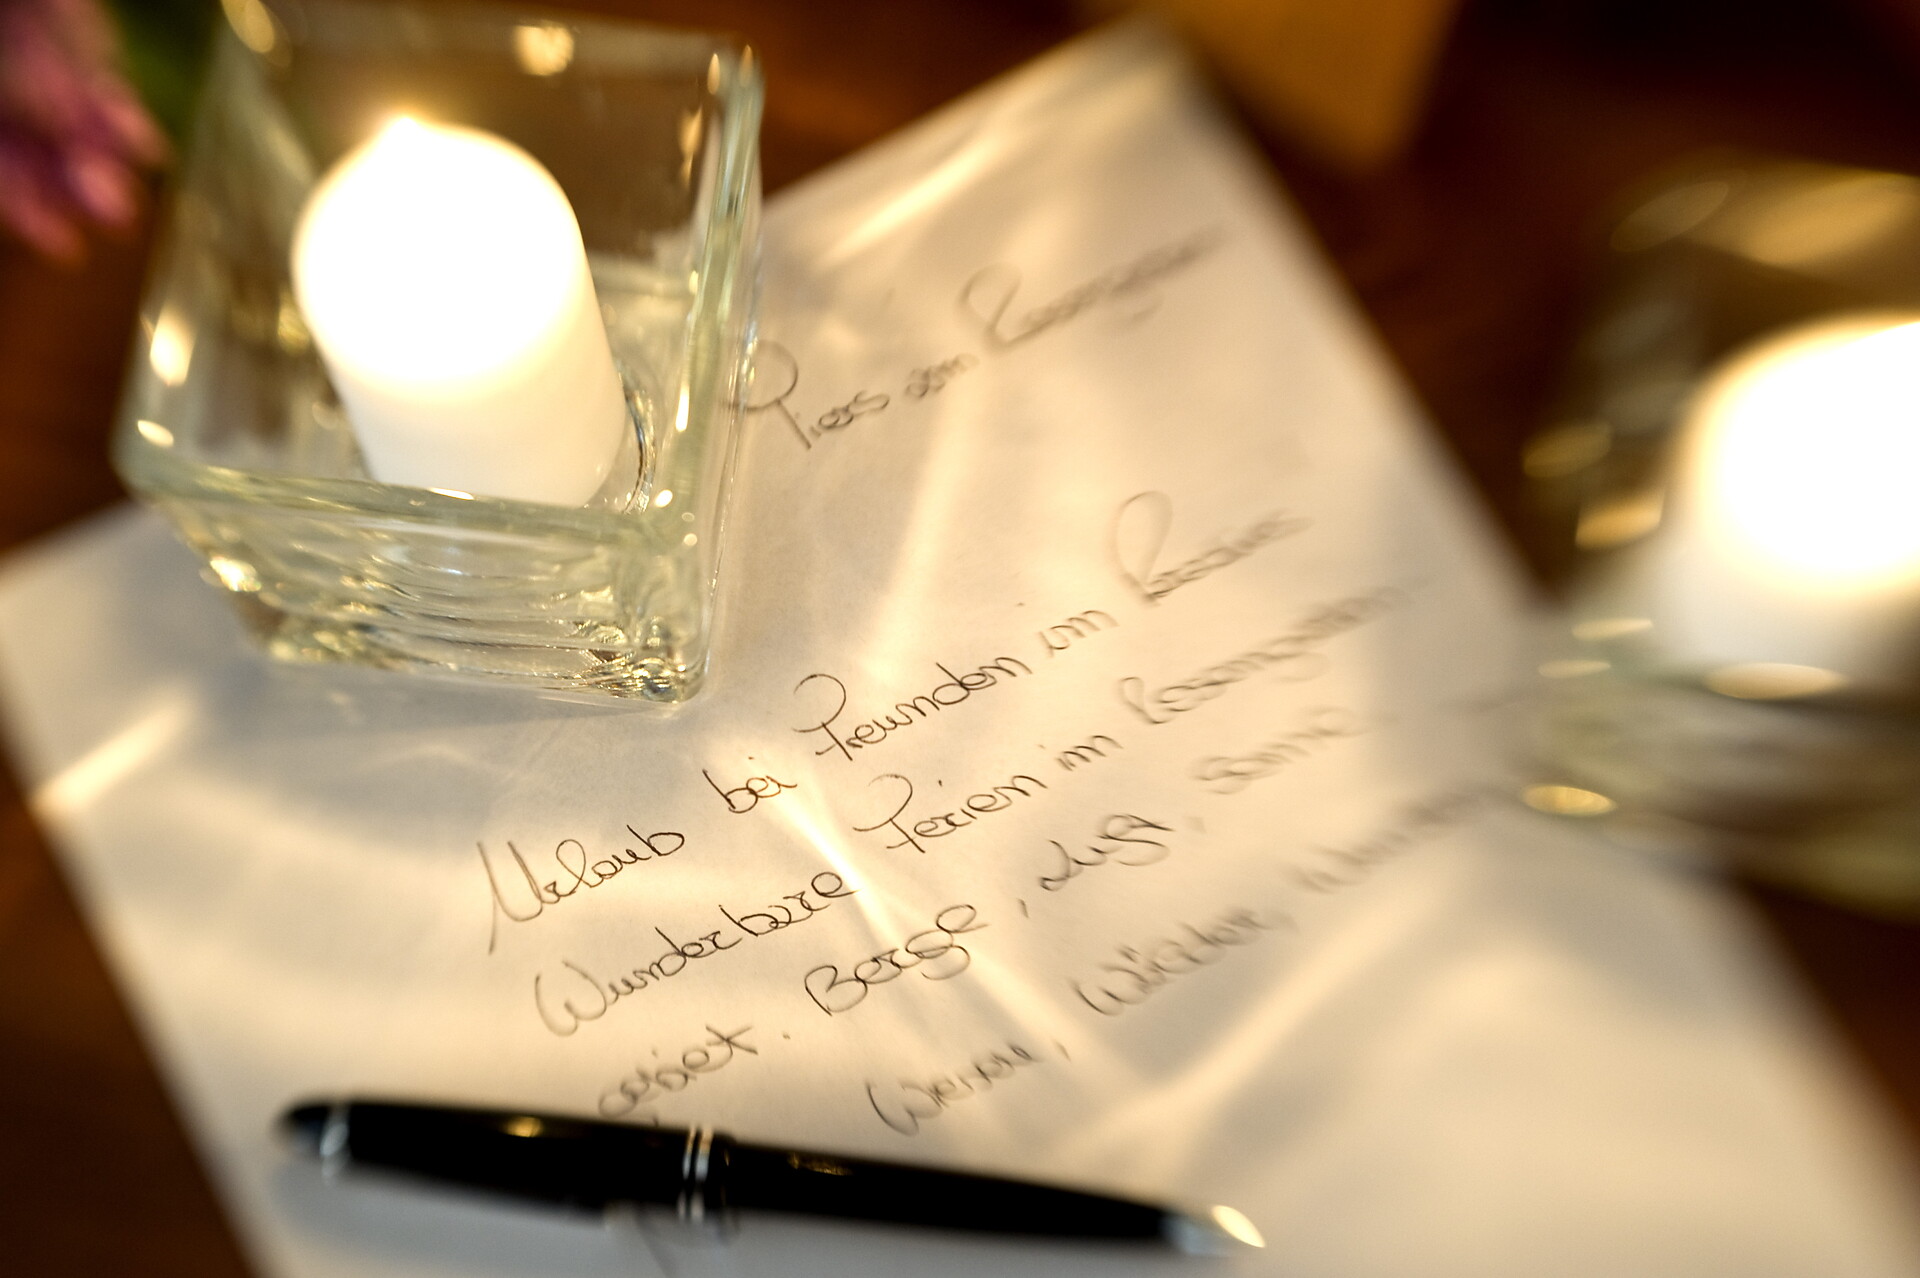 Tiers am Rosengarten
Urlaub bei Freunden im
Wunderbare Ferien im Rosengarten
gebiet. Berge, Luft, Sonne
Wälder,